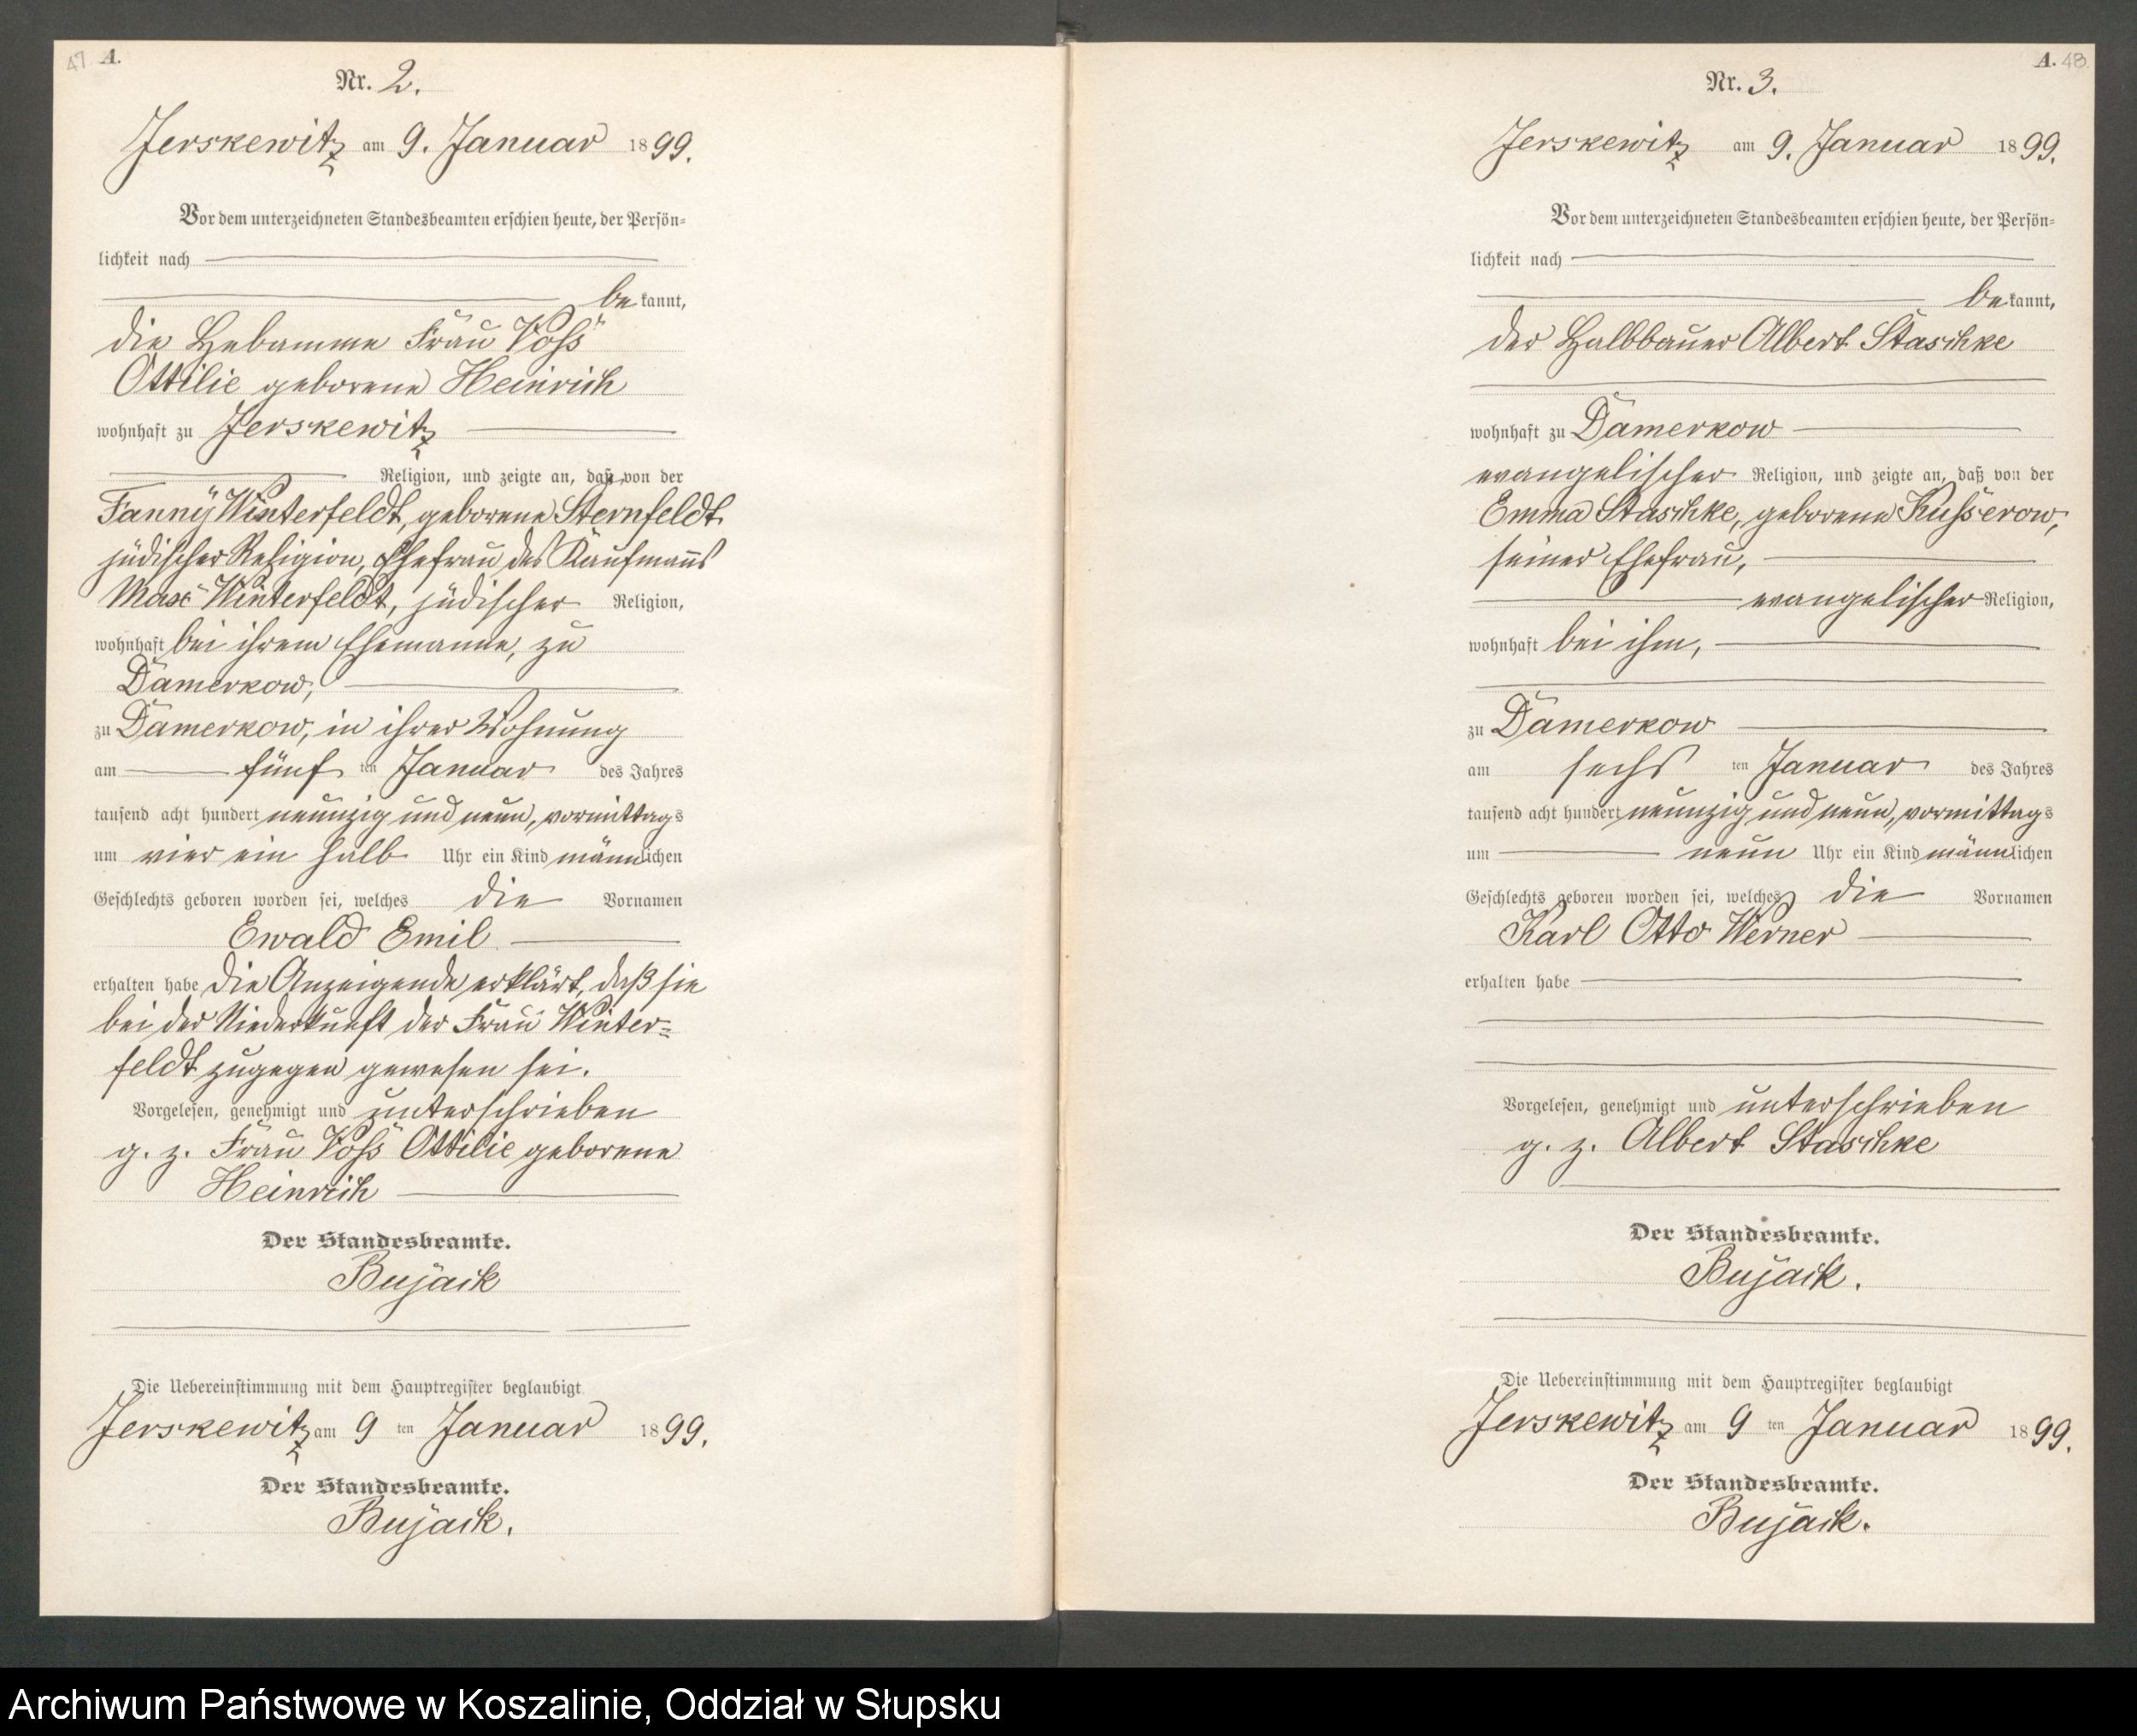 47 A.
Nr. 2.
Jerskewitz am 9. Januar 1899.
Vor dem unterzeichneten Standesbeamten erschien heute, der Persön-
lichkeit nach
bekannt,
die Hebamme Frau Voß
Ottilie geborene Heinrich
wohnhaft zu Jerskewitz
Religion, und zeigte an, daß von der
Fanny Winterfeldt, geborene Sternfeldt
jüdischer Religion, Ehefrau des Kaufmanns
Max Winterfeldt, jüdischer Religion,
wohnhaft bei ihrem Ehemanne, zu
Damerkow,
zu Damerkow, in ihrer Wohnung
am fünf ten Januar des Jahres
tausend acht hundert neunzig und neun, vormittags
um vier ein halb Uhr ein Kind männlichen
Geschlechts geboren worden sei, welches die Vornamen
Ewald Emil
erhalten habe die Anzeigende erklärt, daß sie
bei der Niederkunft der Frau Winter=
feldt zugegen gewesen sei.
Vorgelesen, genehmigt und unterschrieben
g. z. Frau Voß Ottilie geborene
Heinrich
Der Standesbeamte.
Bujack
Die Uebereinstimmung mit dem Hauptregister beglaubigt
Jerskewitz am 9 ten Januar 1899.
Der Standesbeamte.
Bujack.
A. 48
Nr. 3.
Jerskewitz am 9. Januar 1899.
Vor dem unterzeichneten Standesbeamten erschien heute, der Persön-
lichkeit nach
bekannt,
der Halbbauer Albert Staschke
wohnhaft zu Damerkow
evangelischer Religion, und zeigte an, daß von der
Emma Staschke, geborene Kusserow,
seiner Ehefrau,
evangelischer Religion,
wohnhaft bei ihm,
zu Damerkow
am sechs ten Januar des Jahres
tausend acht hundert neunzig und neun, vormittags
um neun Uhr ein Kind männlichen
Geschlechts geboren worden sei, welches die Vornamen
Karl Otto Werner
erhalten habe
Vorgelesen, genehmigt und unterschrieben
g. z. Albert Staschke
Der Standesbeamte.
Bujack.
Die Uebereinstimmung mit dem Hauptregister beglaubigt
Jerskewitz am 9 ten Januar 1899.
Der Standesbeamte.
Bujack.
Archiwum Państwowe w Koszalinie, Oddział w Słupsku